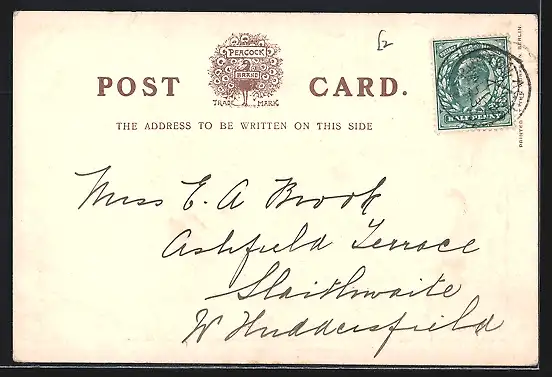 £2
PEACOCK
BRAND
TRADE MARK
POST CARD.
HALFPENNY
THE ADDRESS TO BE WRITTEN ON THIS SIDE
Miss E. A Brook
Ashfield Terrace
Slaithwaite
W Huddersfield